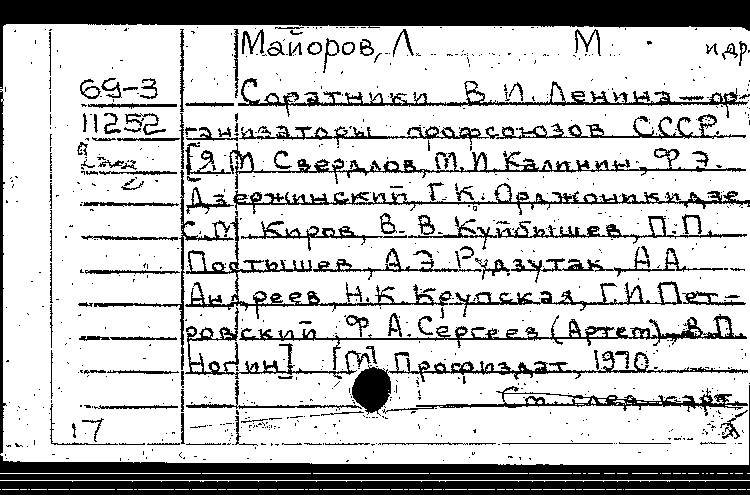 Майоров, Л М. и др.
69-3
11252
Соратники В. И. Ленина — ор-
ганизаторы профсоюзов СССР.
[Я. М. Свердлов, М. И. Калинин, Ф. Э.
Дзержинский, Г. К. Орджоникидзе,
С. М. Киров, В. В. Куйбышев, П. П.
Постышев, А. Э. Рудзутак, А. А.
Андреев, Н. К. Крупская, Г. И. Пет-
ровский, Ф. А. Сергеев (Артем), В. П.
Ногин]. [М] Профиздат, 1970.
См. след. карт.
17